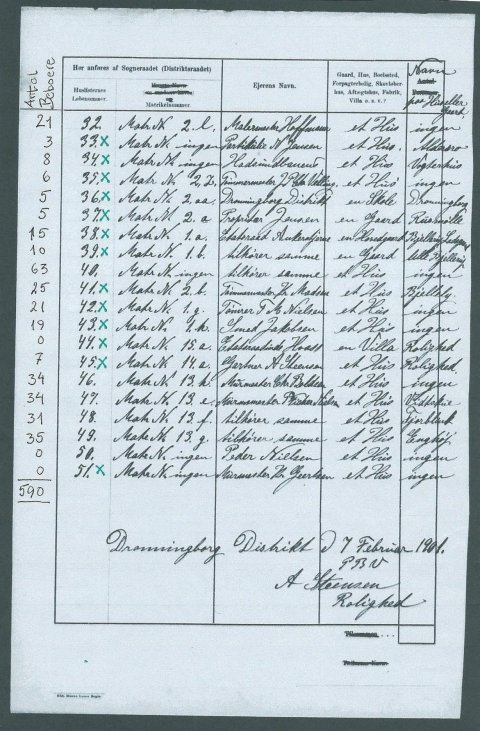 Antal Beboere
Her anføres af Sogneraadet (Distriktsraadet)
Navn
Huslisternes Løbenummer.
Matrikelnummer.
Ejerens Navn.
Gaard, Hus, Boelssted, Forpagterbolig, Skovløberhus, Aftægtshus, Fabrik, Villa o. s. v.?
paa Hus eller Gaard
21 32. Matr N. 2. l. Malermester Hoffmann et Hus ingen
3 33. x Matr N. ingen Partikulier N Jensen et Hus
8 34. x Matr N. ingen Hadsundbanens et Hus Vogterhus
6 35. x Matr N. 2. Tømmermester et Hus ingen
5 36. x Matr N. 2. aa. Dronningborg Distrikt en Skole Dronningborg
5 37. x Matr N. 2. a Proprietær Jensen en Gaard Rosenvilla
15 38. x Matr N. 1. a. Etatsraad en Hovedgaard
10 39. x Matr N. 1. b. tilhører samme en Gaard
63 40. Matr N. ingen tilhører samme et Hus ingen
25 41. x Matr N. 2. b. Tømmermester Madsen et Hus
21 42. x Matr N. 1. g. Tømrer F M Nielsen et Hus ingen
19 43. x Matr N. 4 k. Smed Jakobsen et Hus ingen
0 44. x Matr N. 15. a. en Villa Rolighed
7 45. x Matr N. 14. a. Gartner A Steensen et Hus Rolighed
34 46. Matr N. 13. k. Murmester et Hus ingen
34 47. Matr N. 13. e. Murmester et Hus
31 48. Matr N. 13. f. tilhører samme et Hus
35 49. Matr N. 13. g. tilhører samme et Hus Enghøj
0 50. Matr N. ingen Peder Nielsen et Hus ingen
0 51. x Matr N. ingen Murmester Geertsen et Hus ingen
590
Dronningborg Distrikt d 7 Februar 1901.
P B V
A Steensen
Rolighed